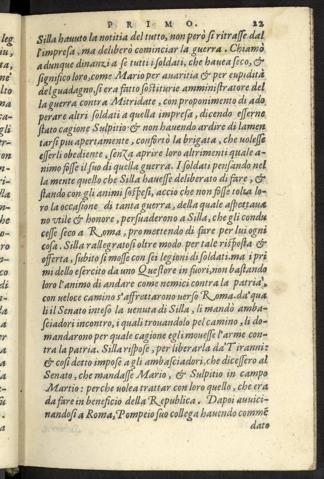 PRIMO. 22
Silla havuto la notitia del tutto, non però si ritrasse dal
l'impresa, ma deliberò cominciar la guerra. Chiamò
adunque dinanzi a se tutti i soldati, che havea seco, &
significo loro, come Mario per avaritia & per cupidità
del guadagno, s'era fatto sostituire amministratore del
la guerra contra Mitridate, con proponimento di ado
perare altri soldati a quella impresa, dicendo esserne
stato cagione Sulpitio: & non havendo ardire di lamen
tarsi piu apertamente, confortò la brigata, che volesse
esserli obediente, senza aprire loro altrimenti quale a=
nimo fosse il suo di quella guerra. I soldati pensando nel
la mente quello che Silla havesse deliberato di fare, &
stando con gli animi sospesi, accio che non fosse tolta lo=
ro la occasione di tanta guerra, della quale aspettava
no utile & honore, persuaderono a Silla, che gli condu
cesse seco a Roma, promettendo di fare per lui ogni
cosa. Silla rallegratosi oltre modo per tale risposta &
offerta, subito si mosse con sei legioni di soldati. ma i pri
mi dello esercito da uno Questore in fuori, non bastando
loro l'animo di andare come nemici contra la patria,
con veloce camino s'affrettarono verso Roma. da' qua
li il Senato inteso la venuta di Silla, li mandò amba=
sciadori incontro, i quali trovandolo pel camino, li do=
mandarono per quale cagione egli movesse l'arme con=
tra la patria. Silla rispose, per liberarla da' Tiranni:
& cosi detto impose a gli ambasciadori, che dicessero al
Senato, che mandasse Mario, & Sulpitio in campo
Martio: perche volea trattar con loro quello, che era
da fare in beneficio della Republica. Dapoi avvici=
nandosi a Roma, Pompeio suo collega havendo comme
dato